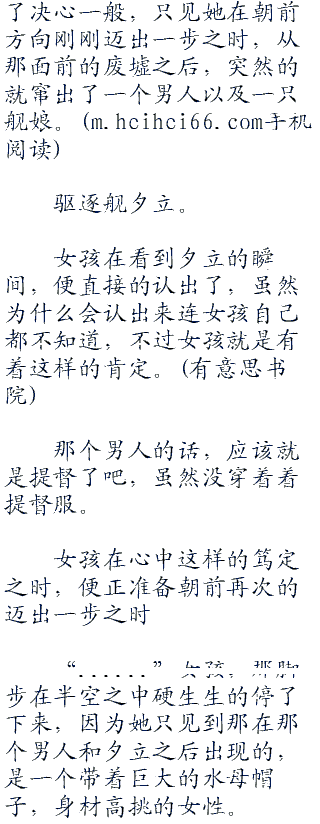 了决心一般，只见她在朝前
方向刚刚迈出一步之时，从
那面前的废墟之后，突然的
就窜出了一个男人以及一只
舰娘。(m.hcihci66.com手机
阅读)
驱逐舰夕立。
女孩在看到夕立的瞬
间，便直接的认出了，虽然
为什么会认出来连女孩自己
都不知道，不过女孩就是有
着这样的肯定。(有意思书
院)
那个男人的话，应该就
是提督了吧，虽然没穿着着
提督服。
女孩在心中这样的笃定
之时，便正准备朝前再次的
迈出一步之时
“......”女孩，那脚
步在半空之中硬生生的停了
下来，因为她只见到那在那
个男人和夕立之后出现的，
是一个带着巨大的水母帽
子，身材高挑的女性。